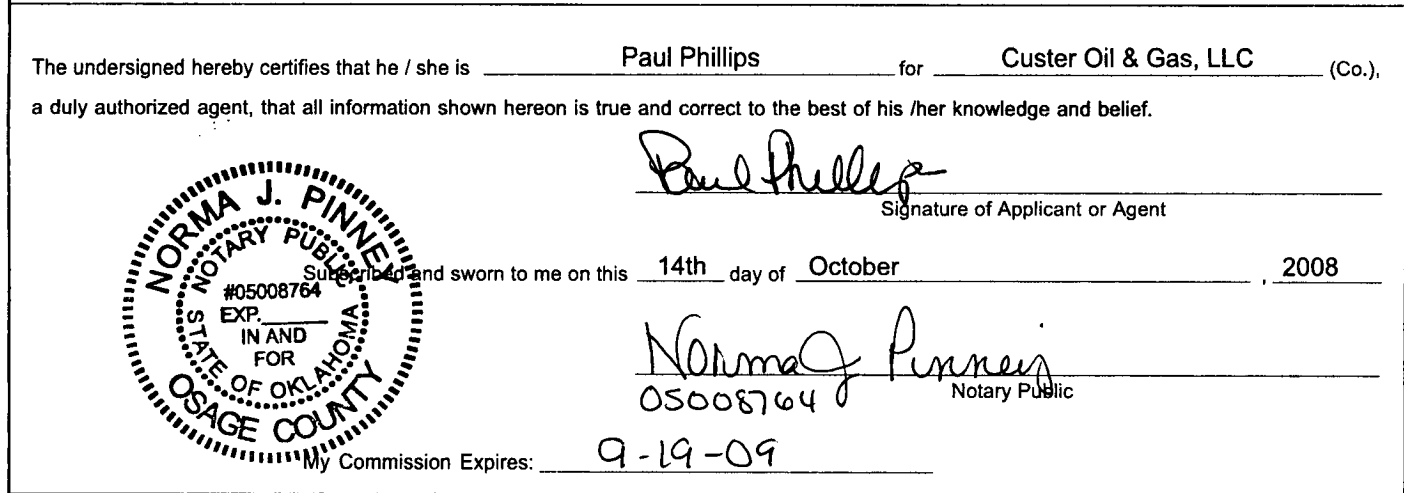 The undersigned hereby certifies that he / she is Paul Phillips for Custer Oil & Gas, LLC (Co.),
a duly authorized agent, that all information shown hereon is true and correct to the best of his /her knowledge and belief.
Paul Phillips
Signature of Applicant or Agent
NORMA J. PINNEY
NOTARY PUBLIC
#05008764
EXP.
IN AND
FOR
STATE OF OKLAHOMA
OSAGE COUNTY
Subscribed and sworn to me on this 14th day of October , 2008
Norma J Pinney
05008764 Notary Public
My Commission Expires: 9-19-09